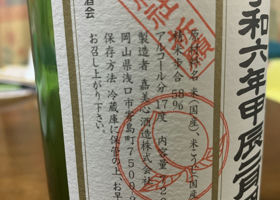 令和六年甲辰二月
原材料名 米(国産)、米こうじ(国産
精米歩合 58%
アルコール分17度 内容量 72
製造者 嘉美心酒造株式会
岡山県浅口市寄島町7500
保存方法 冷蔵庫に保管の上、お早
お召し上がり下さい。
酒会